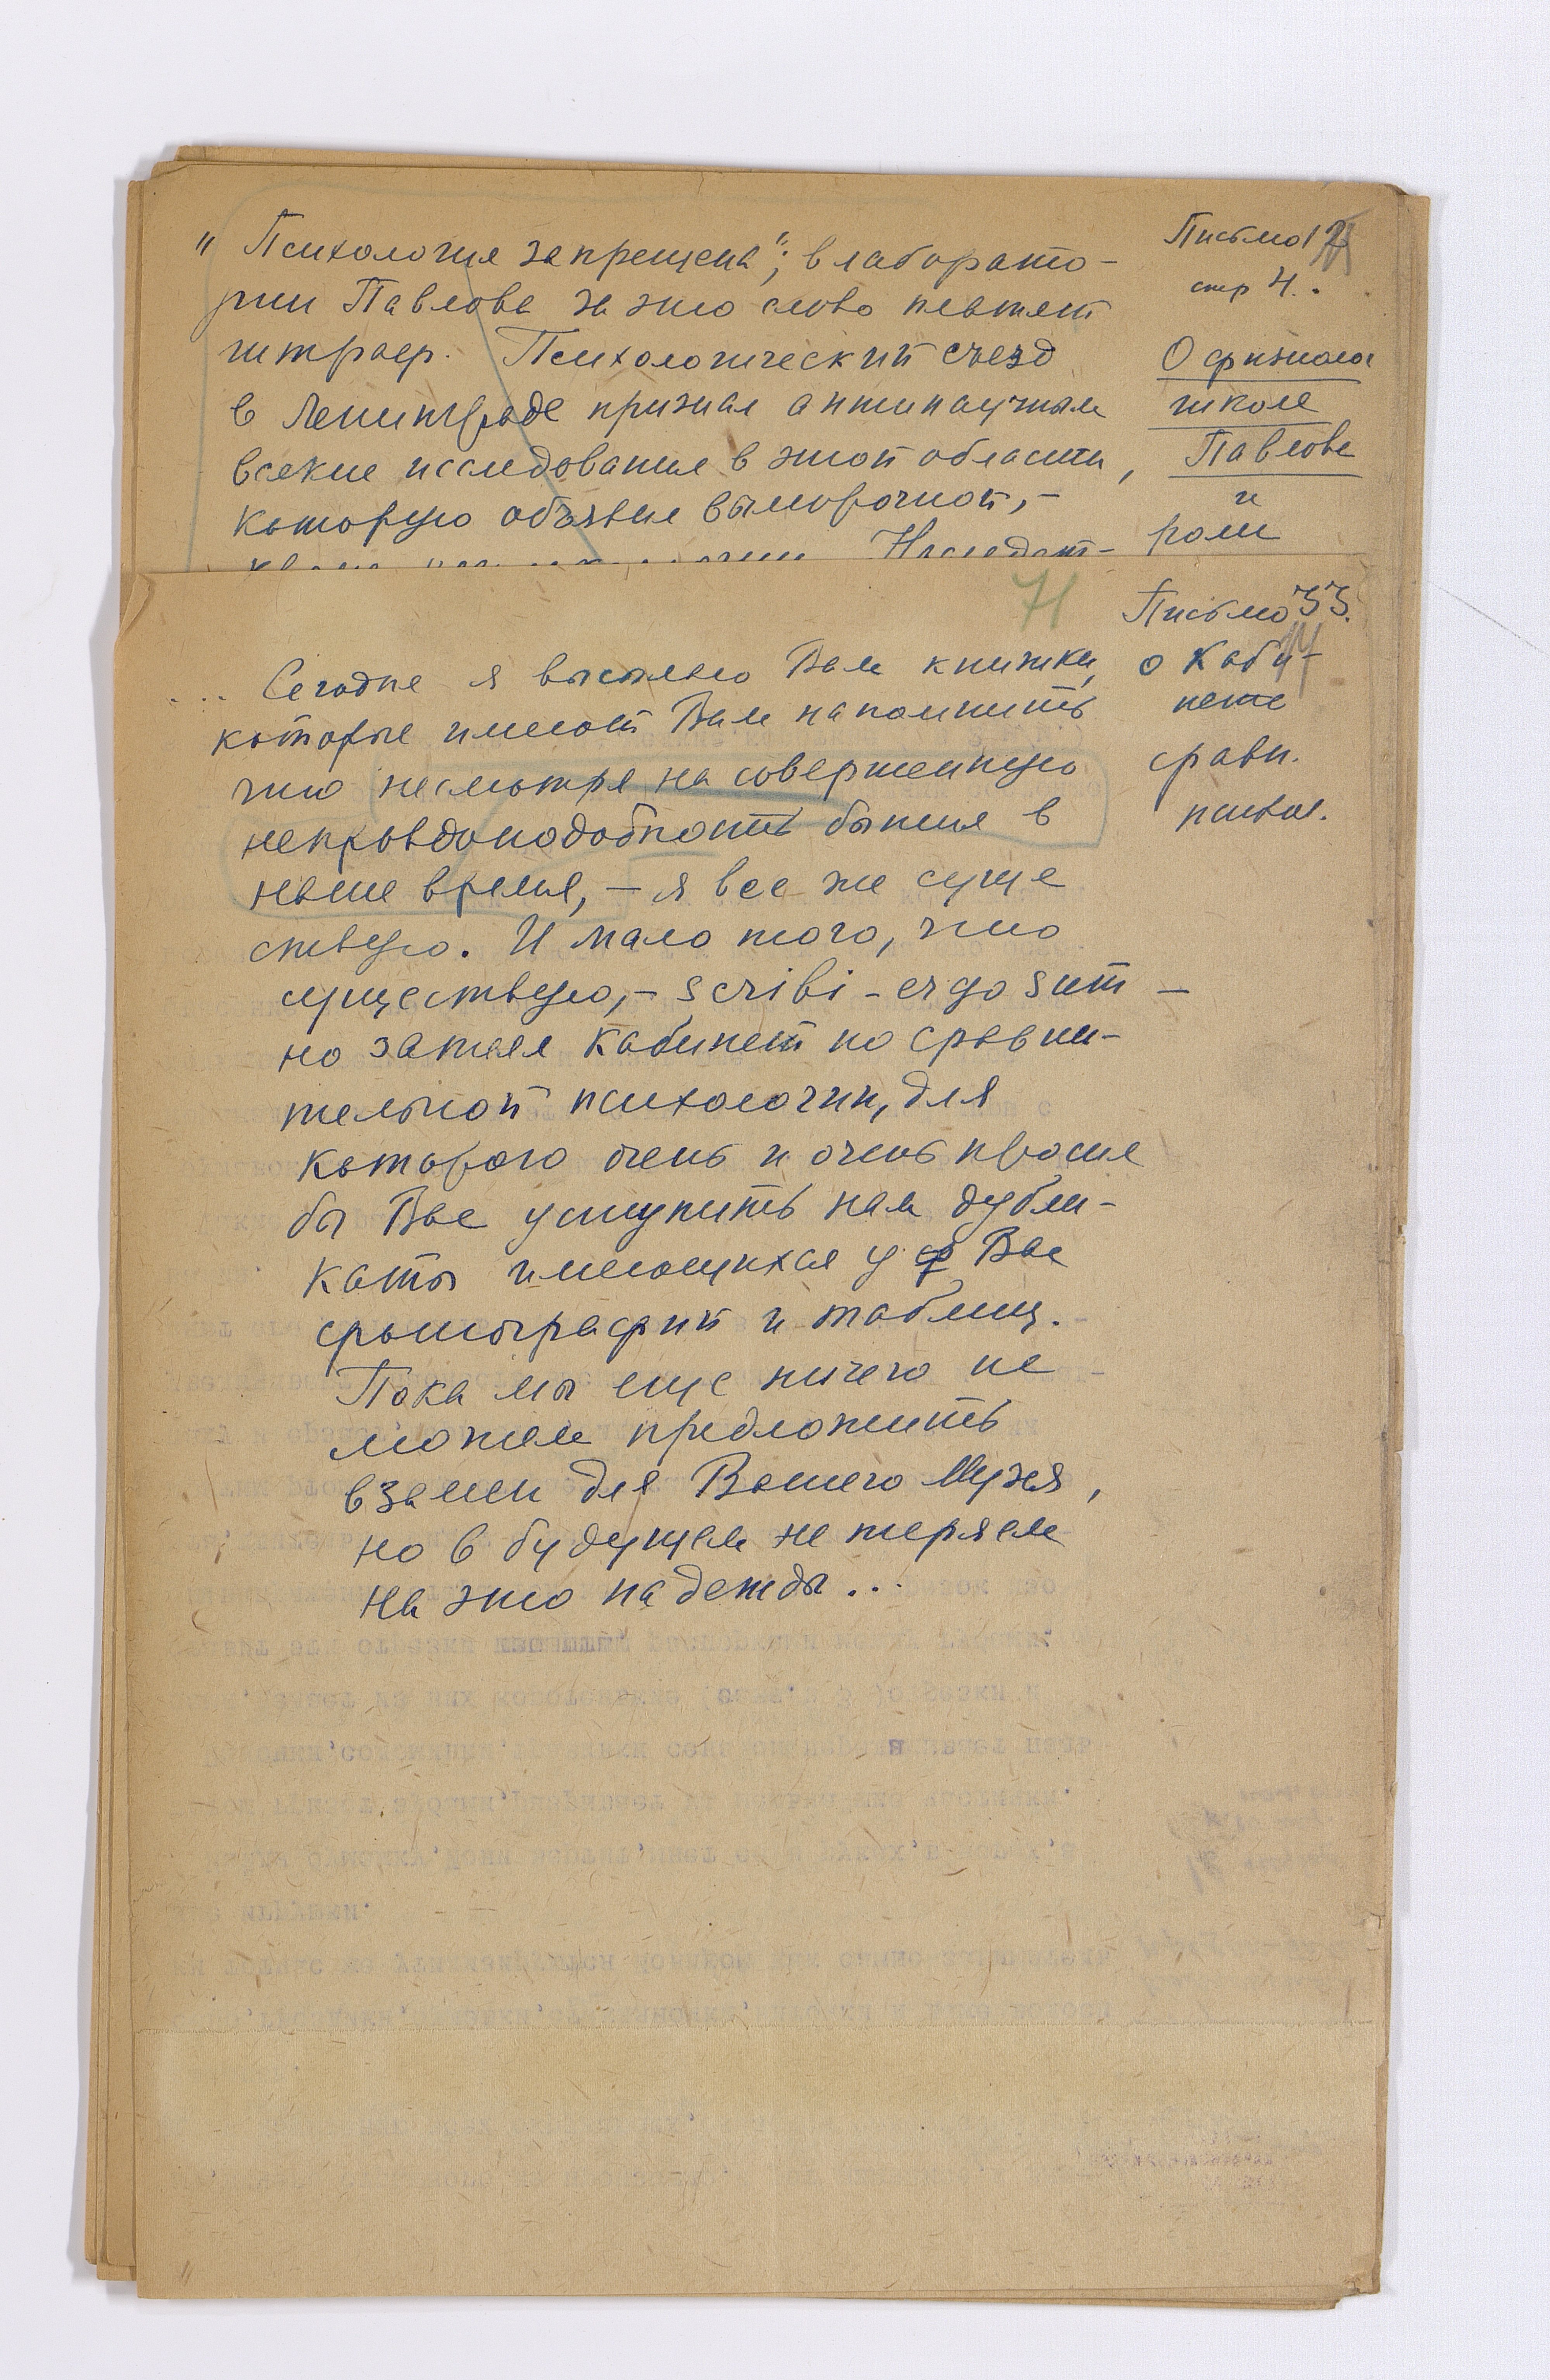 „Психология запрещена"; в лаборато-
рии Павлова за это слово платят
штраф. Психологический съезд
в Ленинграде признал антинаучным
всякие исследования в этой области,
которую объявил выморочной,-
Письмо 12
стр 4.
О физиол
школе
Павлова
и
роли
71
Письмо 33.
о Каби-
нете
сравн.
психол.
... Сегодня я высылаю Вам книжки,
которые имеют Вам напомнить
что несмотря на совершенную
неправдоподобность бытия в
наше время, - я все же суще
ствую. И мало того, что
существую, - scribi - ergo sum -
но затеял Кабинет по сравни-
тельной психологии, для
которого очень и очень просил
бы Вас уступить нам дубли-
каты имеющихся у Вас
фотографий и таблиц.
Пока мы еще ничего не
можем предложить
взамен для Вашего Музея,
но в будущем не теряем
на это надежды...